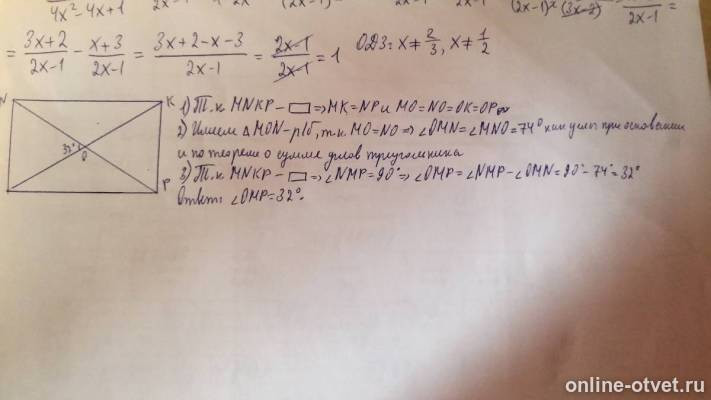 4x²-4x+1
2x-1
= 3x+2/2x-1 - x+3/2x-1 = 3x+2-x-3/2x-1 = 2x-1/2x-1 = 1 ОДЗ: x≠2/3, x≠1/2
(2x-1)×(3x-2) 2x-1 =
N K
32°
O
P
1) Т.к MNKP- ▭ => MK=NP и MO=NO=OK=OP
2) Имеем ΔMON-р/б, т.к. MO=NO => ∠OMN=∠MNO=74° как углы при основании
и по теореме о сумме углов треугольника
3) Т.к MNKP- ▭ => ∠NMP=90° => ∠OMP=∠NMP-∠OMN=90°-74°=32°
Ответ: ∠OMP=32°.
online-otvet.ru